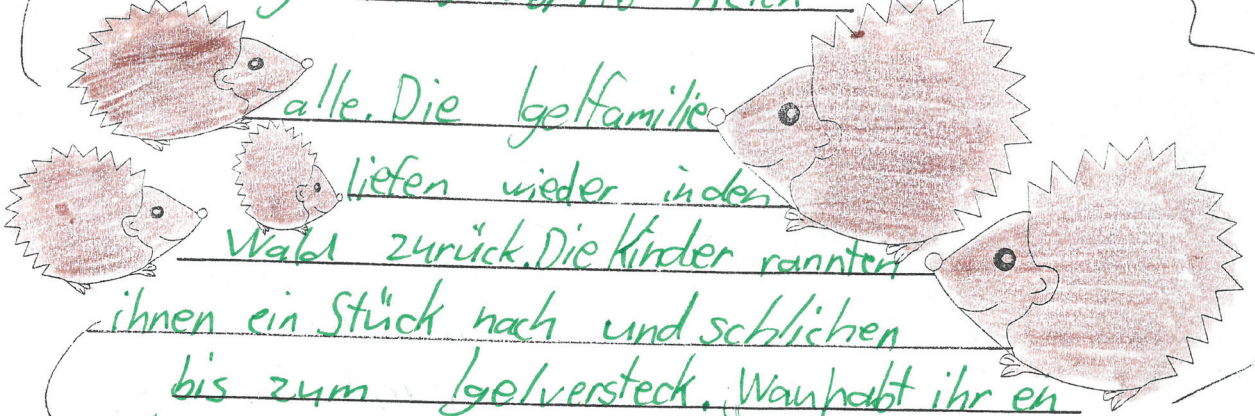 alle. Die Igelfamilie
liefen wieder in den
Wald zurück. Die Kinder rannten
ihnen ein Stück nach und schlichen
bis zum Igelversteck. Wau habt ihr en